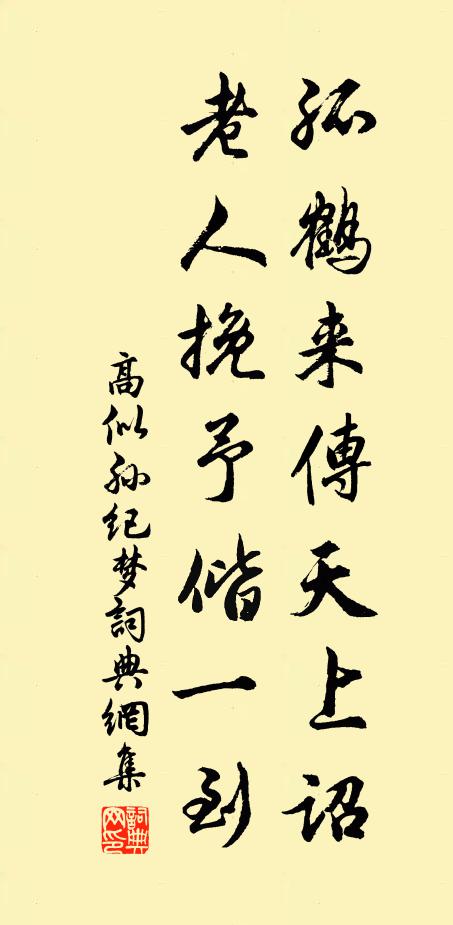 孤鶴来傳天上詔
老人挽予偕一到
高似孙纪梦詞典網集
詞典網印